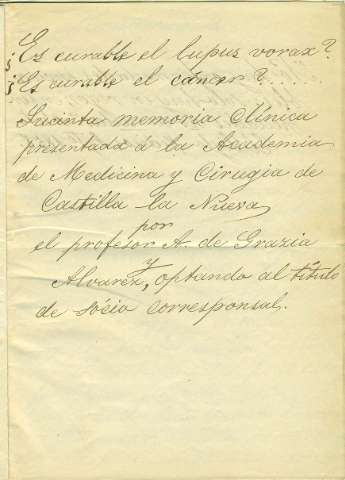 ¿Es curable el lupus vorax?
¿Es curable el cáncer?....
Sucinta memoria Clínica
presentada á la Academia
de Medicina y Cirugia de
Castilla la Nueva
por
el profesor A. de Grazia
y
Alvarez, optando al título
de sócio corresponsal.